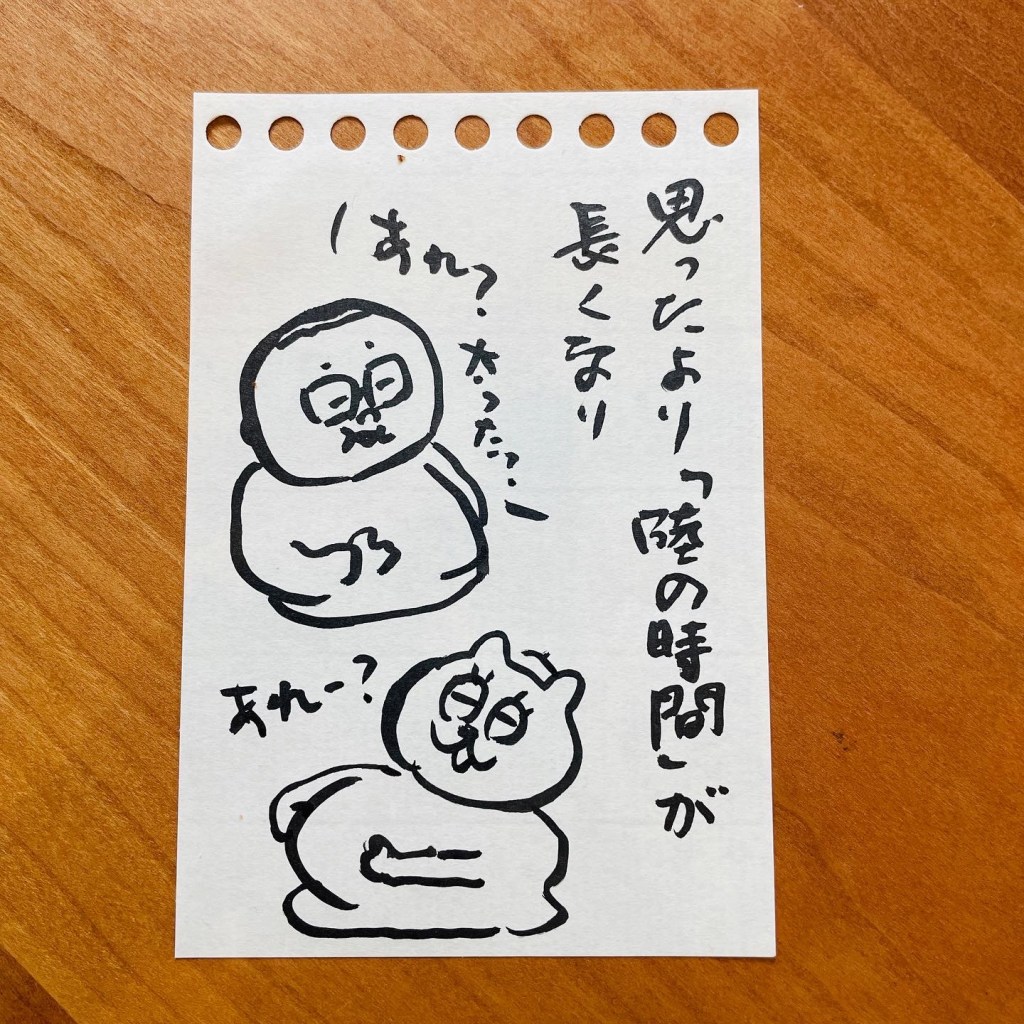 思ったより「陸の時間」が
長くなり
(あれ?
太った?)
あれー?